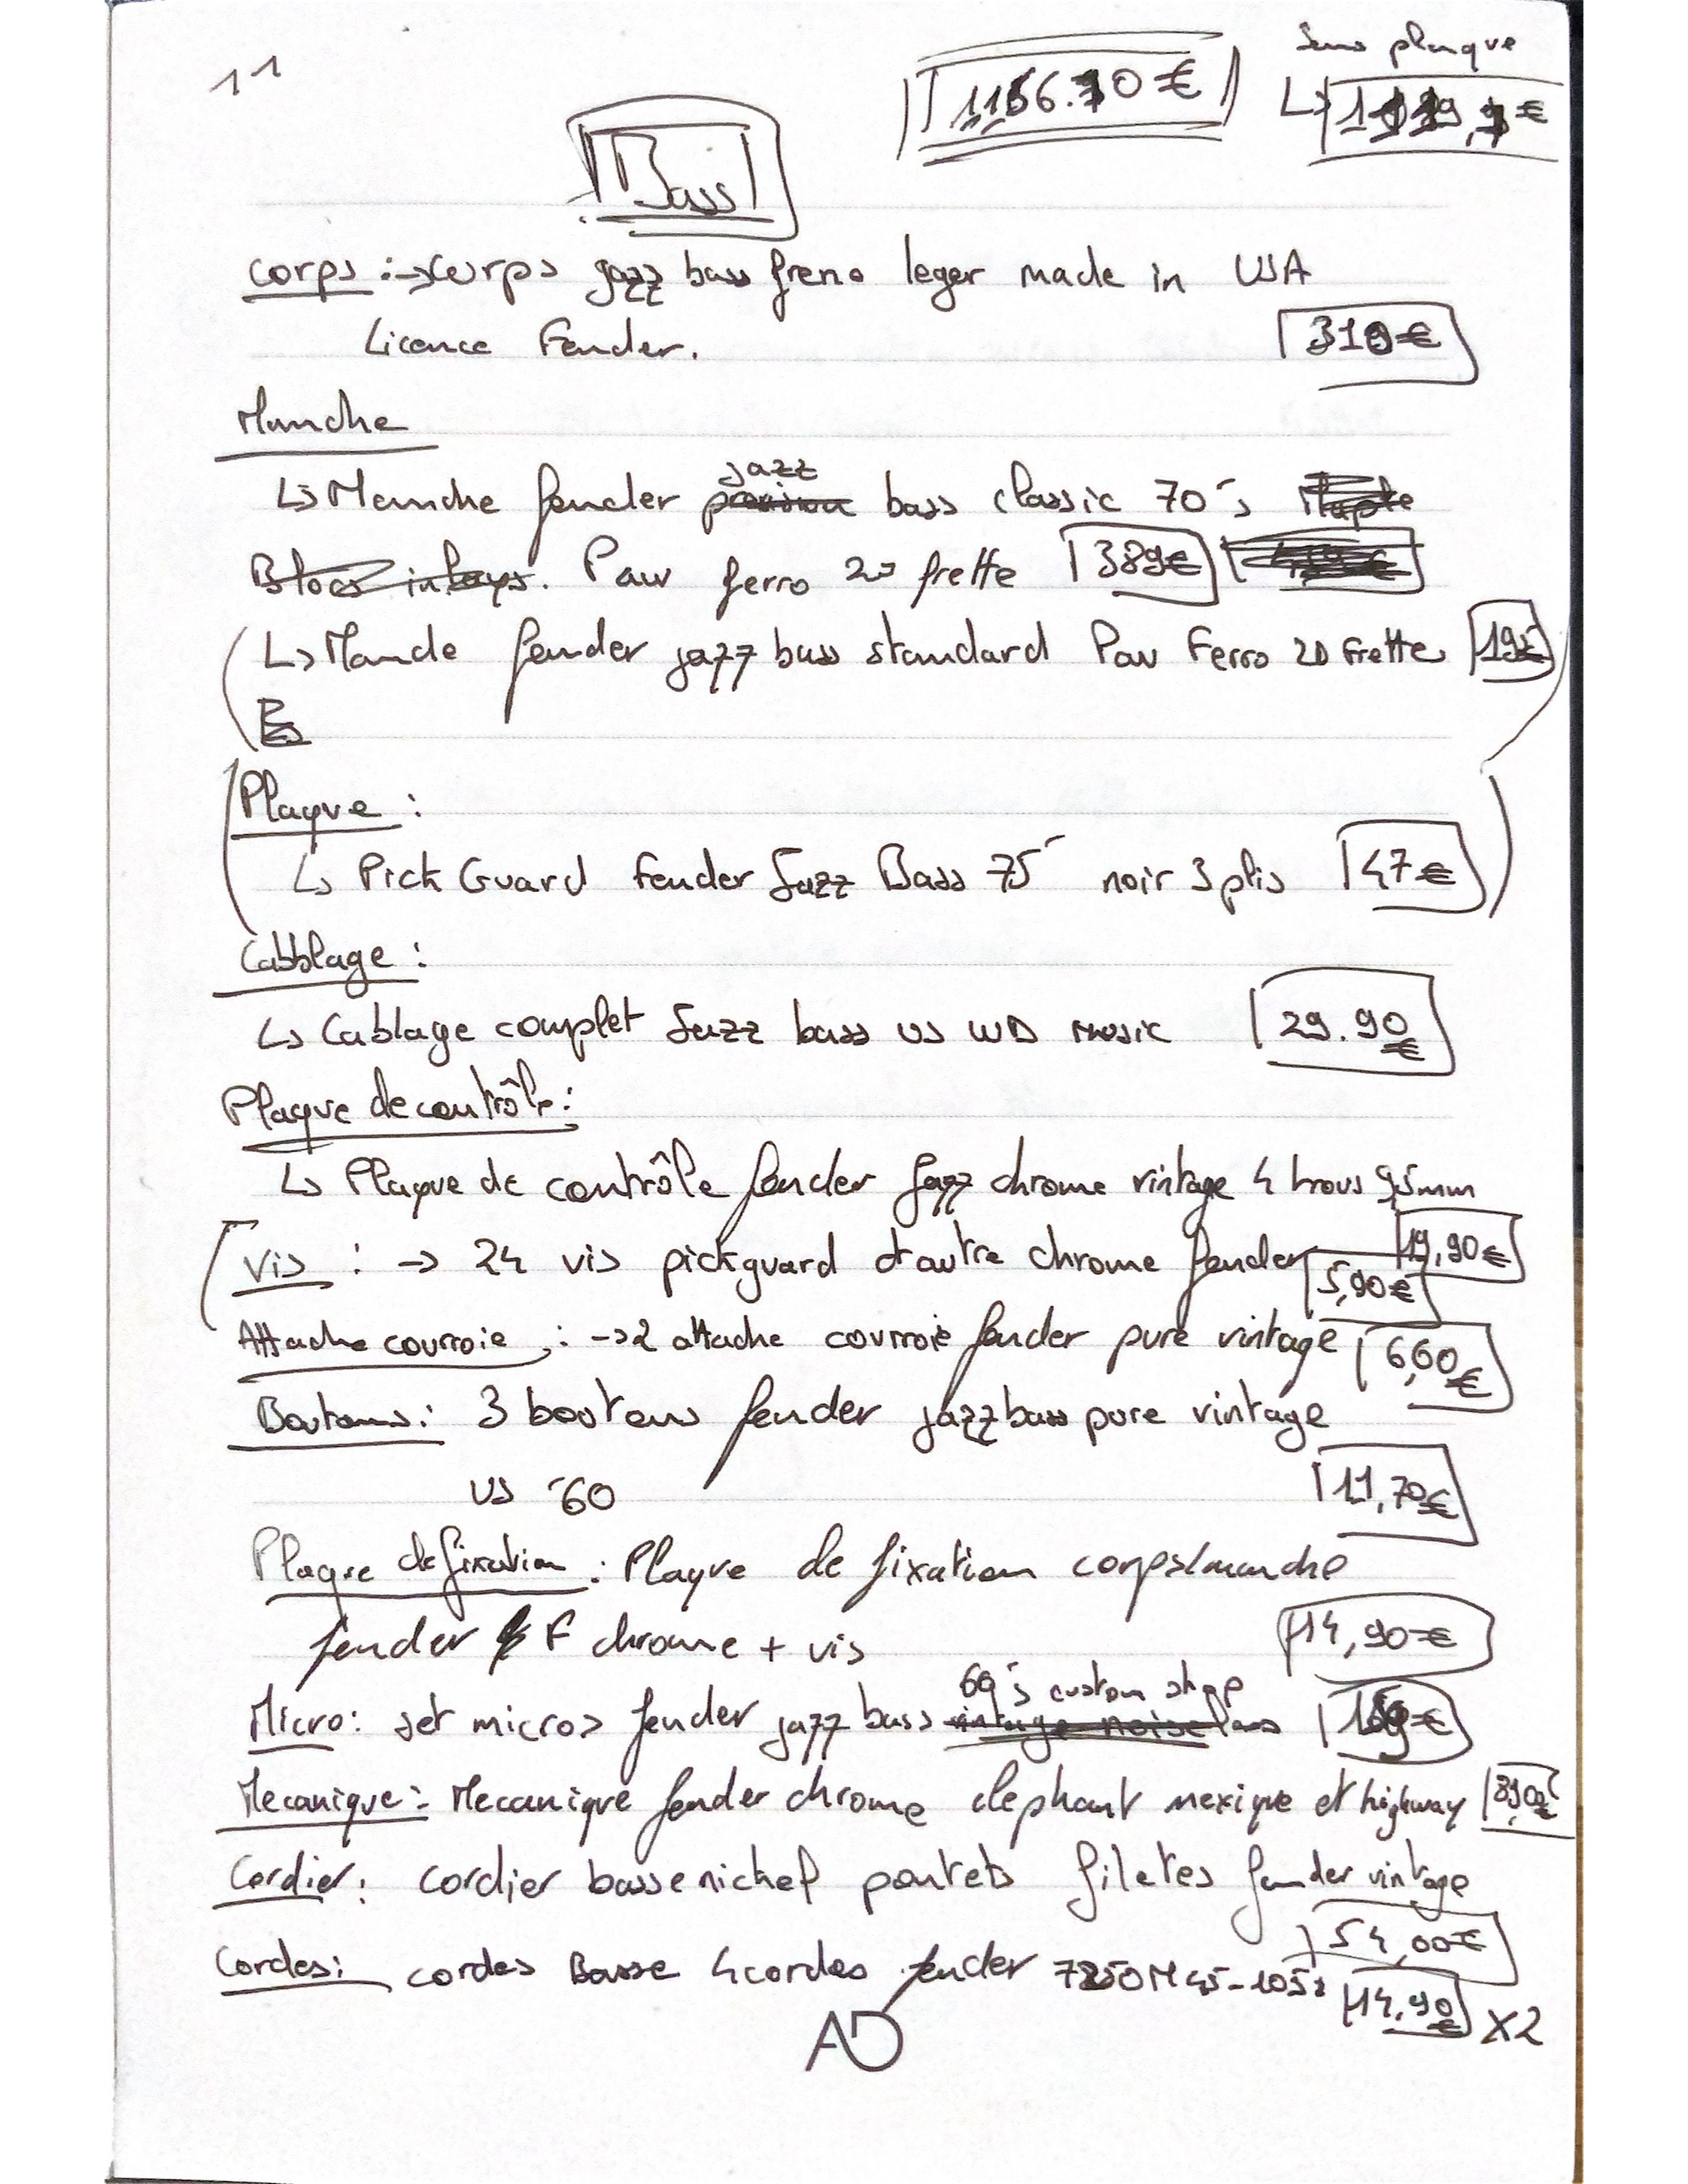 11
1166.70€
Sans plaque
↳
Bass
Corps :→ Corps jazz bass frene leger made in USA
Licence Fender. 310€
Manche
↳ Manche fender jazz bass classic 70's
Blocs inlays. Pau ferro 20 frette 389€
(↳ Manche fender jazz bass standard Pau Ferro 20 Frette
(Plaque :
↳ Pick Guard Fender Jazz Bass 75' noir 3 plis 47€)
Cabblage :
↳ Cablage complet Jazz bass US WD music 29.90€
Plaque de contrôle :
↳ Plaque de contrôle fender jazz chrome vintage 4 trous 9,5mm
19,90€
(Vis : → 24 vis pickguard et autre chrome fender
5,90€
Attache courroie : →2 attache courroie fender pure vintage 6,60€
Boutons : 3 boutons fender jazz bass pure vintage
US '60 11,70€
Plaque de fixation : Plaque de fixation corps/manche
fender F chrome + vis 14,90€
60's custom shop
Micro : set micros fender jazz bass vintage noiseless 169€
Mecanique : Mecanique fender chrome elephant mexique et highway
Cordier : cordier basse nickel pontets filetes fender vintage
54,00€
Cordes : cordes Basse 4 cordes fender 7250M 45-105
14,90€ X2
AD